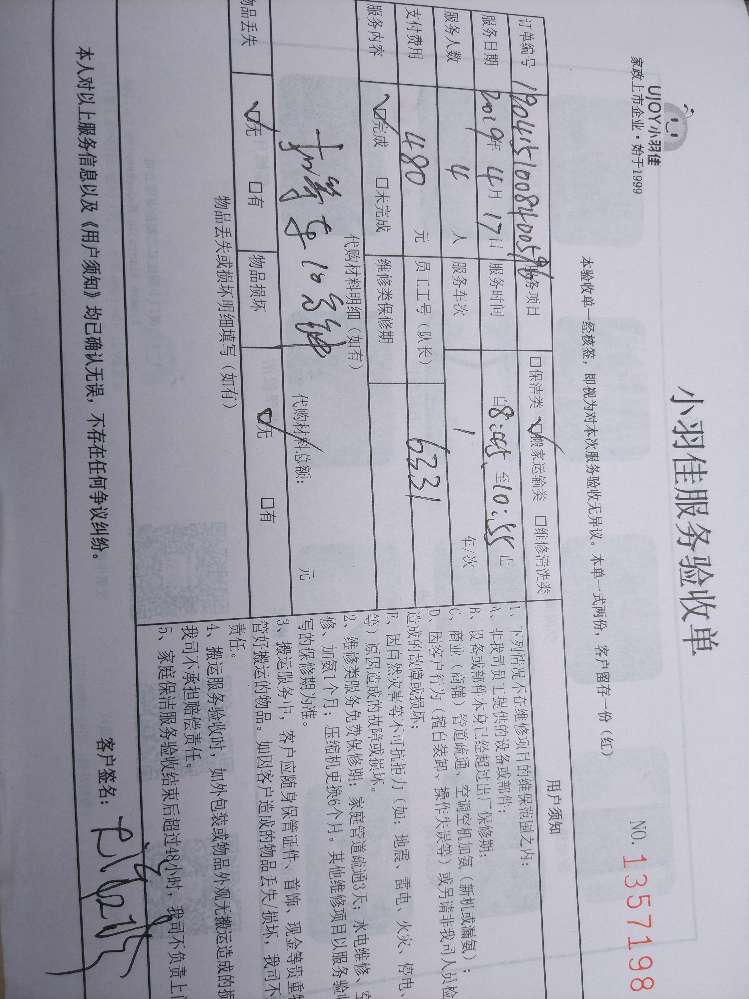 UJOY小羽佳
家政上市企业·始于1999
小羽佳服务验收单
NO. 1357198
本验收单一经核签，即视为对本次服务验收无异议。本单一式两份，客户留存一份（红）
订单编号 190415100840059 服务项目 □保洁类 ☑搬家运输类 □维修清洗类
服务日期 2019年4月17日 服务时间 自8:45至10:55止
服务人数 4 人 服务车次 1 车/次
支付费用 480 元 员工工号（队长） 6331
服务内容 ☑完成 □未完成 维修类保修期
代购材料明细（如有）
代购材料总额： 元
物品丢失 ☑无 □有 物品损坏 ☑无 □有
物品丢失或损坏明细填写（如有）
用户须知
1、下列情况不在维修项目的维保范围之内：
A、非我司员工提供的设备或部件；
B、设备或部件本身已经超过出厂保修期；
C、商业（商铺）管道疏通、空调空机加氨（新机或漏氨）；
D、因客户行为（擅自装卸、操作失误等）或另请非我司人员检
造成的故障或损坏；
E、因自然灾害等不可抗拒力（如：地震、雷电、火灾、停电、
等）原因造成的故障或损坏。
2、维修类服务免费保修期：家庭管道疏通3天；水电维修、空
修、加氨1个月；压缩机更换6个月。其他维修项目以服务验收
写的保修期为准。
3、搬运服务中，客户应随身保管证件、首饰、现金等贵重物
管好搬运的物品。如因客户造成的物品丢失/损坏，我司不
责任。
4、搬运服务验收时，如外包装或物品外观无搬运造成的损
我司不承担赔偿责任。
5、家庭保洁服务验收结束后超过48小时，我司不负责上门
本人对以上服务信息以及《用户须知》均已确认无误，不存在任何争议纠纷。
客户签名：